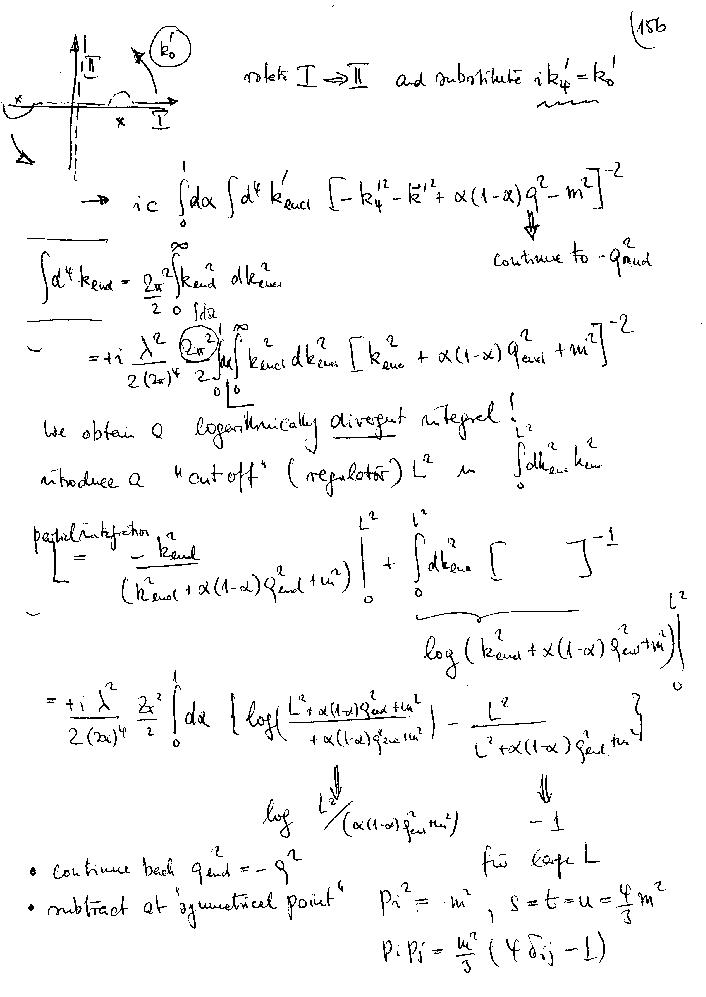 (156
k₀'
II
I
rotate I ⇒ II and substitute ik₄' = k₀'
→ ic ∫₀¹ dα ∫ d⁴k'_eucl [-k₄'² - k⃗'² + α(1-α) q² - m²]⁻²
continue to -q²_eucl
∫ d⁴k_eucl = 2π²/2 ∫₀^∞ k²_eucl dk²_eucl
∫dα
= +i λ²/(2(2π)⁴) 2π²/2 ∫₀¹ dα ∫₀^∞ k²_eucl dk²_eucl [k²_eucl + α(1-α) q²_eucl + m²]⁻²
We obtain a logarithmically divergent integral!
introduce a "cut off" (regulator) L² in ∫₀^{L²} dk²_eucl k²_eucl
partial integration
= - k²_eucl/(k²_eucl + α(1-α) q²_eucl + m²) |₀^{L²} + ∫₀^{L²} dk²_eucl [ ]⁻¹
log(k²_eucl + α(1-α) q²_eucl + m²)|₀^{L²}
= +i λ²/(2(2π)⁴) 2π²/2 ∫₀¹ dα { log( (L² + α(1-α) q²_eucl + m²)/(+ α(1-α) q²_eucl + m²) ) - L²/(L² + α(1-α) q²_eucl + m²) }
log L²/(α(1-α) q²_eucl + m²)
-1
for large L
• continue back q²_eucl = -q²
• subtract at "symmetrical point" pᵢ² = m², s = t = u = 4/3 m²
pᵢpⱼ = m²/3 (4δᵢⱼ - 1)